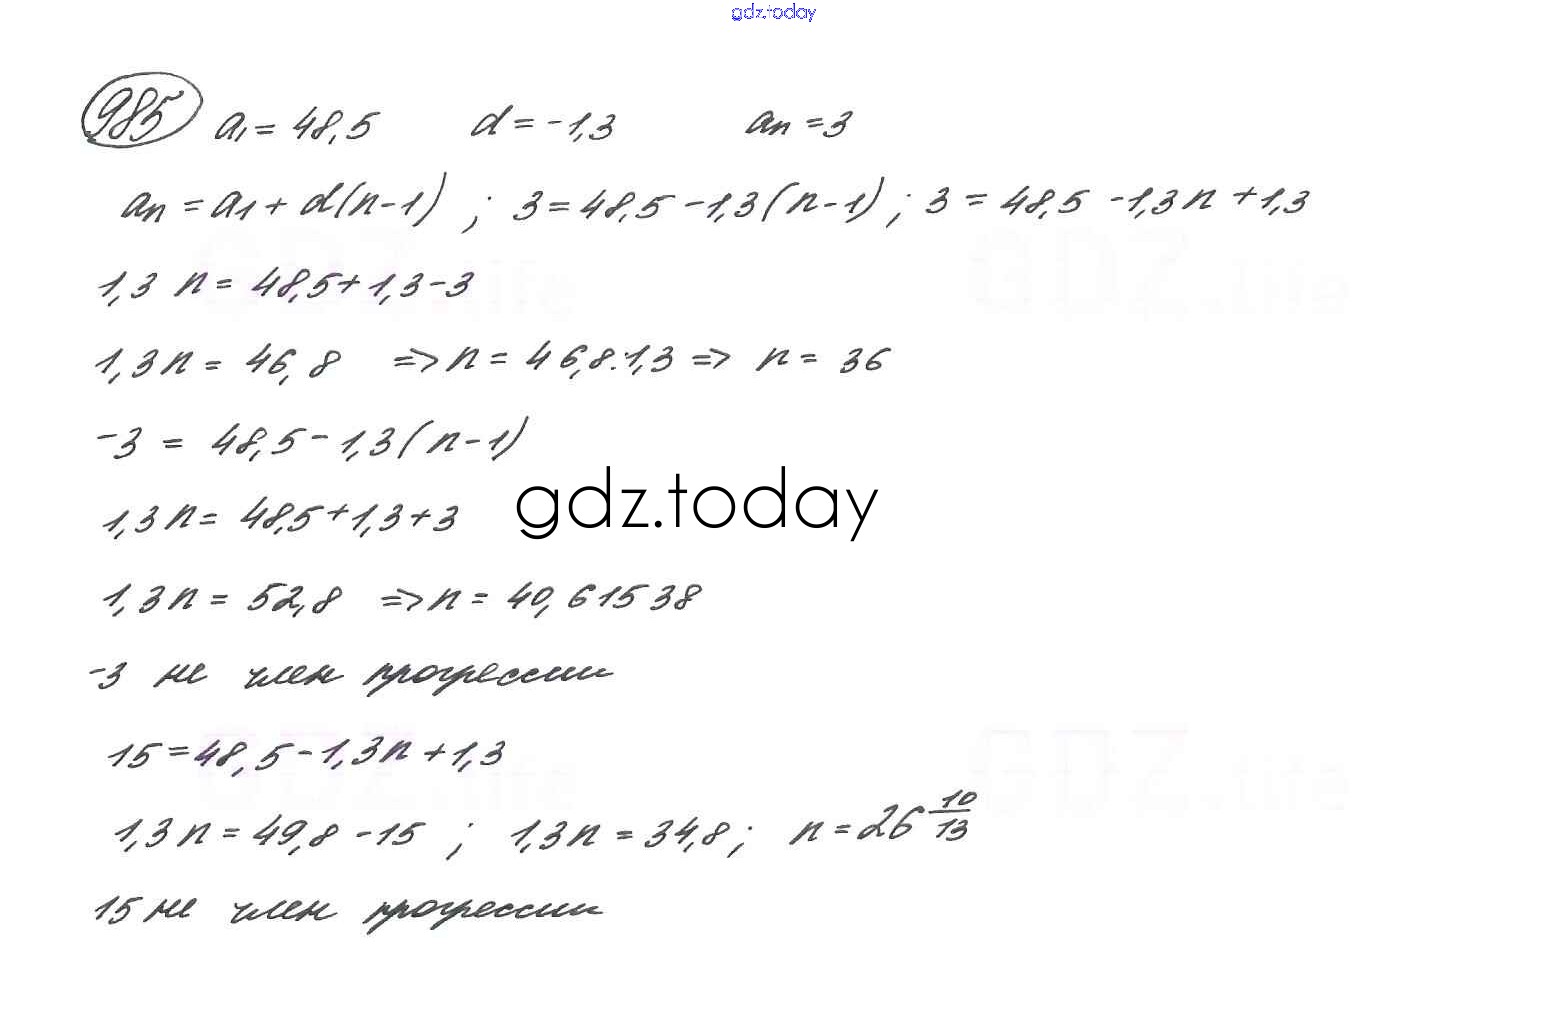 gdz.today
985 a₁ = 48,5 d = -1,3 aₙ = 3
aₙ = a₁ + d(n-1) ; 3 = 48,5 - 1,3(n-1) ; 3 = 48,5 - 1,3n + 1,3
1,3 n = 48,5 + 1,3 - 3
1,3n = 46,8 => n = 46,8:1,3 => n = 36
-3 = 48,5 - 1,3(n-1)
gdz.today
1,3n = 48,5 + 1,3 + 3
1,3n = 52,8 => n = 40,61538
-3 не член прогрессии
15 = 48,5 - 1,3n + 1,3
1,3n = 49,8 - 15 ; 1,3n = 34,8 ; n = 26 10/13
15 не член прогрессии
GDZ.life
GDZ.life
GDZ.life
GDZ.life